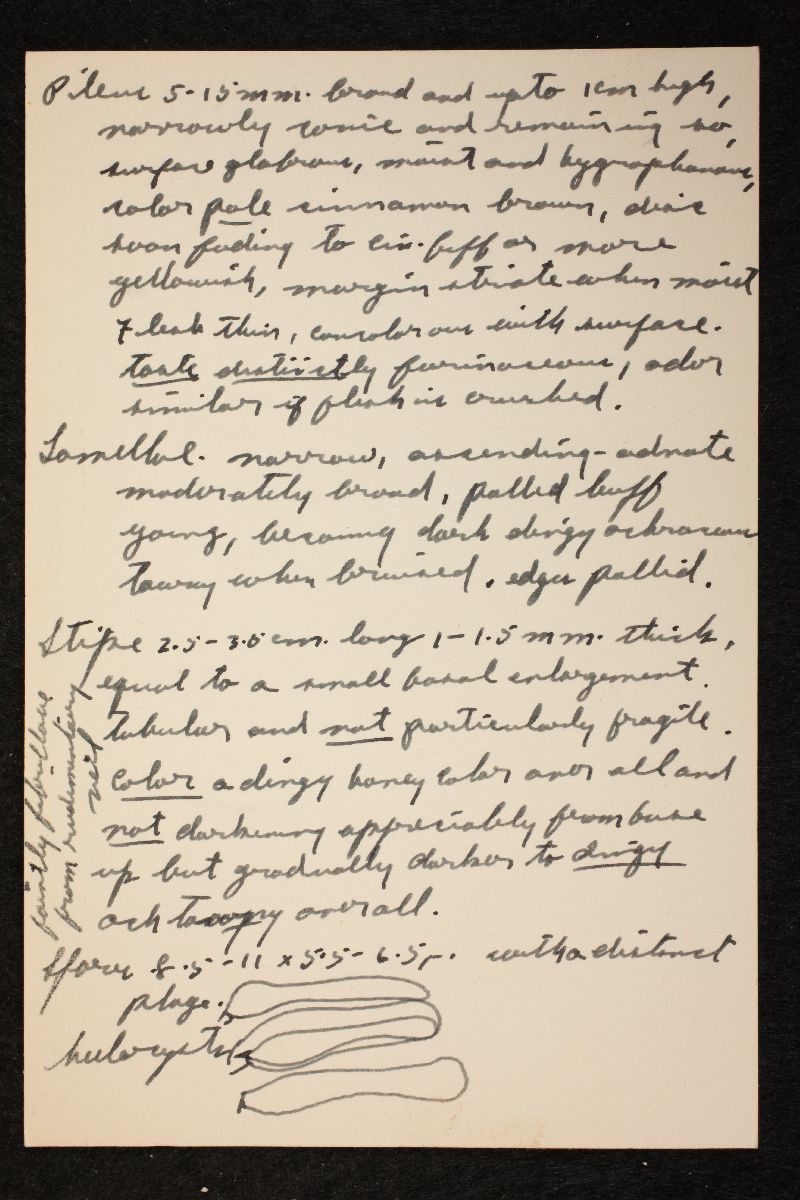 Pileus 5-15 mm. broad and up to 1 cm high,
narrowly conic and remaining so,
surface glabrous, moist and hygrophanous,
color pale cinnamon brown, disc
soon fading to cin. buff or more
yellowish, margin striate when moist
Flesh thin, concolorous with surface.
taste distinctly farinaceous, odor
similar if flesh is crushed.
Lamellae. narrow, ascending-adnate
moderately broad, pallid buff
young, becoming dark dingy ochraceous
tawny when bruised. edges pallid.
Stipe 2.5-3.5 cm. long 1-1.5 mm. thick,
equal to a small basal enlargement.
Tubular and not particularly fragile.
color a dingy honey color over all and
not darkening appreciably from base
up but gradually darker to dingy
och tawny overall.
faintly fibrillose
from rudimentary
veil
Spores 8.5-11 x 5.5-6.5 µ. with a distinct
plage.